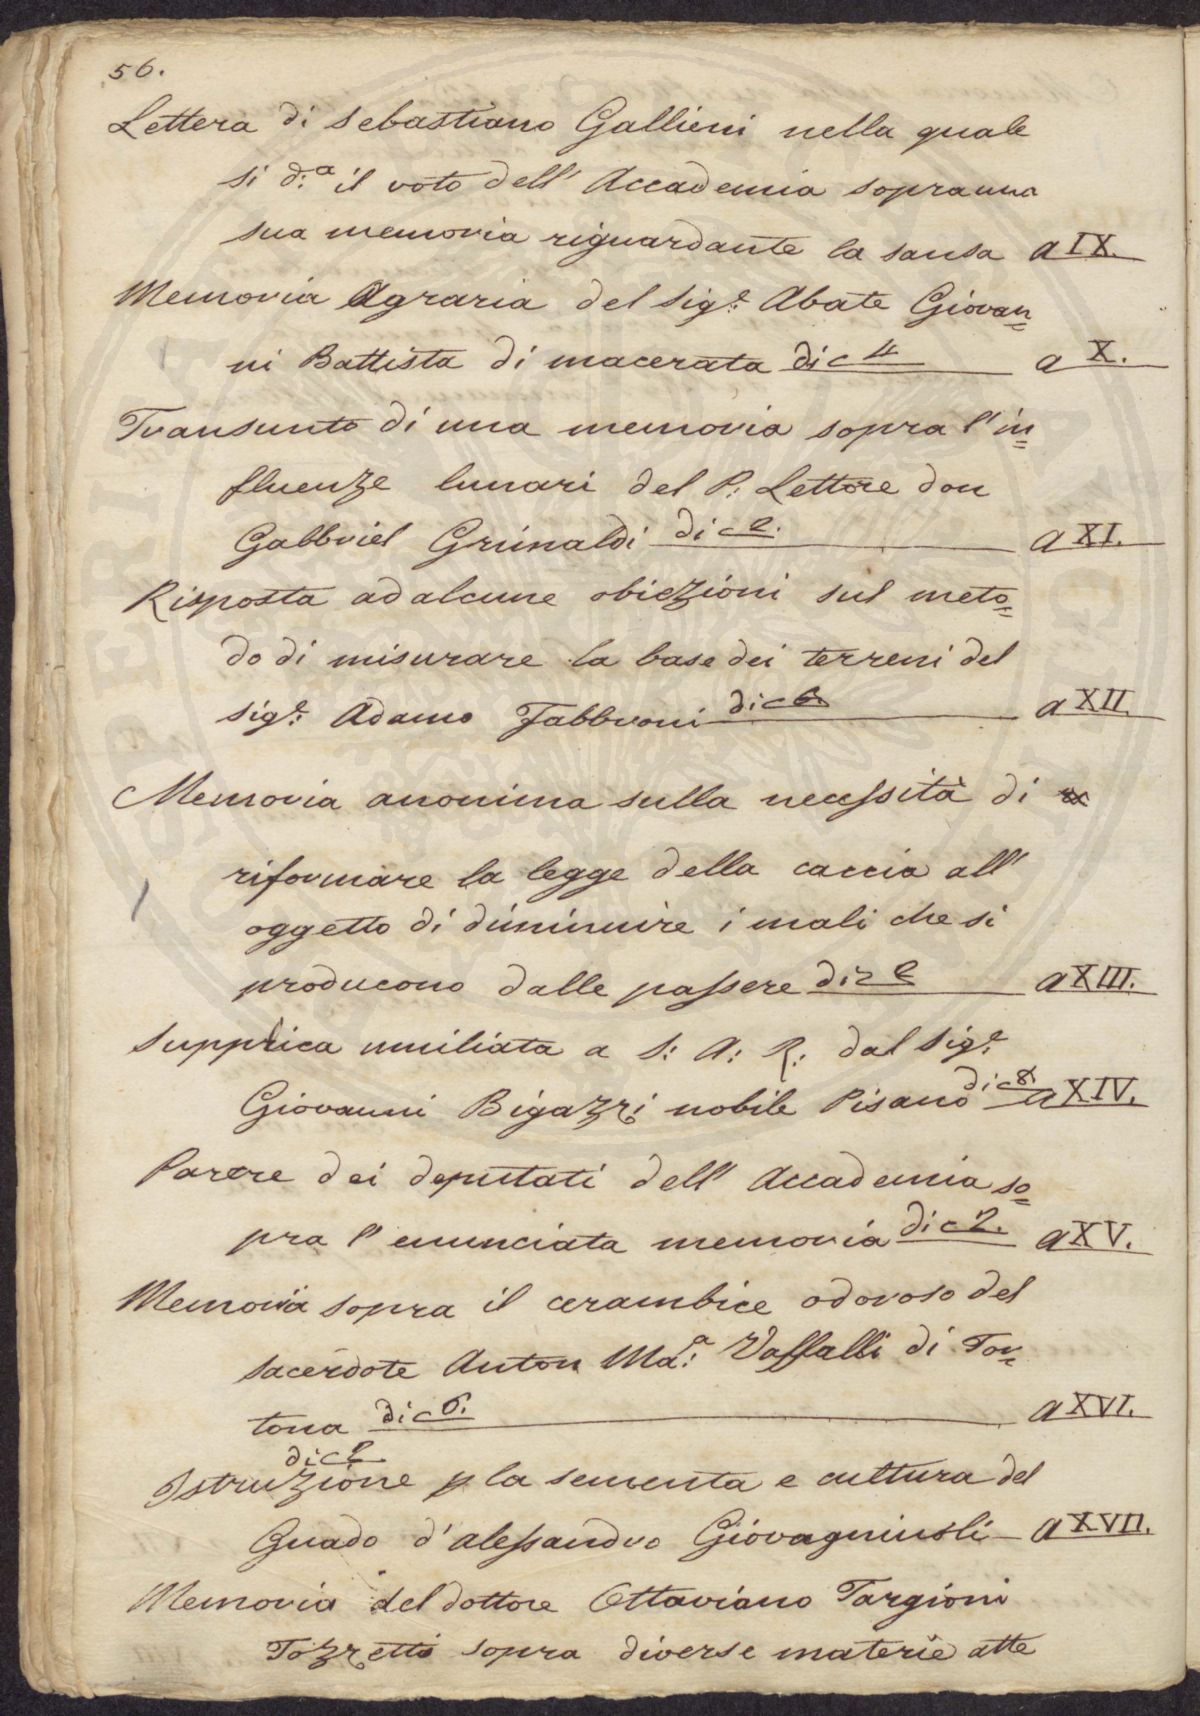 56.
Lettera di Sebastiano Gallieni nella quale
si d:a il voto dell' Accademia sopra una
sua memoria riguardante la sansa a IX.
Memoria Agraria del Sig.e Abate Giovan=
ni Battista di macerata di c 4 a X.
Transunto di una memoria sopra l'in=
fluenze lunari del P: Lettore don
Gabbriel Grimaldi di c 2. a XI.
Risposta ad alcune obiezioni sul meto=
do di misurare la base dei terreni del
sig.e Adamo Fabbroni di c 6. a XII.
Memoria anonima sulla necessità di
riformare la legge della caccia all'
oggetto di diminuire i mali che si
producono dalle passere di c 2 a XIII.
Supplica umiliata a S: A: R: dal Sig.e
Giovanni Bigazzi nobile Pisano di c 8. a XIV.
Parere dei deputati dell' Accademia so=
pra l' enunciata memoria di c 2. a XV.
Memoria sopra il cerambice odoroso del
sacerdote Anton Ma:a Vassalli di Tor=
tona di c 6. a XVI.
di c 2
Istruzione p la sementa e cultura del
Guado d' alessandro Giovagniusli a XVII.
Memoria del dottore Ottaviano Targioni
Tozzetti sopra diverse materie atte